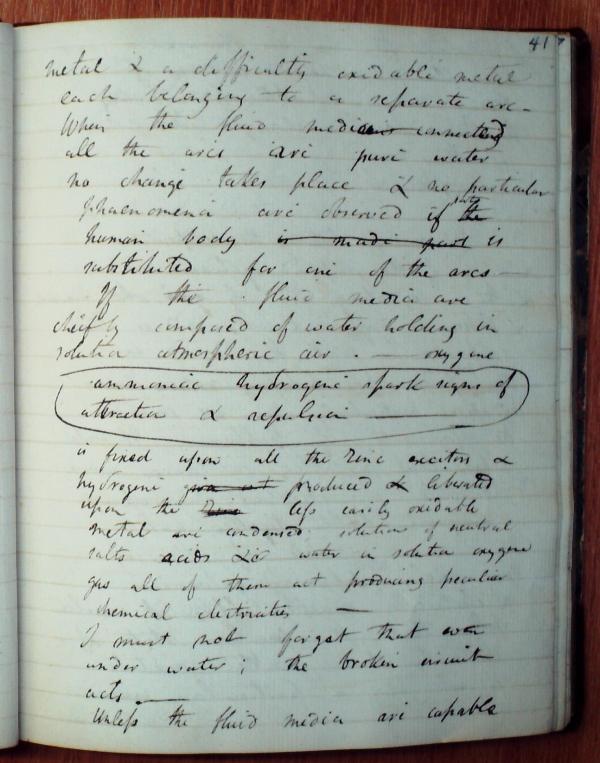 417
metal & a difficultly oxidable metal
each belonging to a separate arc -
When the fluid media connected
all the arcs are pure water
no change takes place & no particular
phaenomena are observed if the
human body is made part is
substituted for one of the arcs -
If the fluid media are
cheifly composed of water holding in
solution atmospheric air. — oxygene
ammoniac hydrogene spark signs of
attraction & repulsion —
is fixed upon all the zinc excitors &
hydrogene produced & liberated
upon the Zinc less easily oxidable
metal are condensed. solution of neutral
salts acids &c water in solution oxygene
gas all of them act producing peculiar
chemical electricities —
I must not forget that even
under water; the broken circuit
acts. —
Unless the fluid media are capable